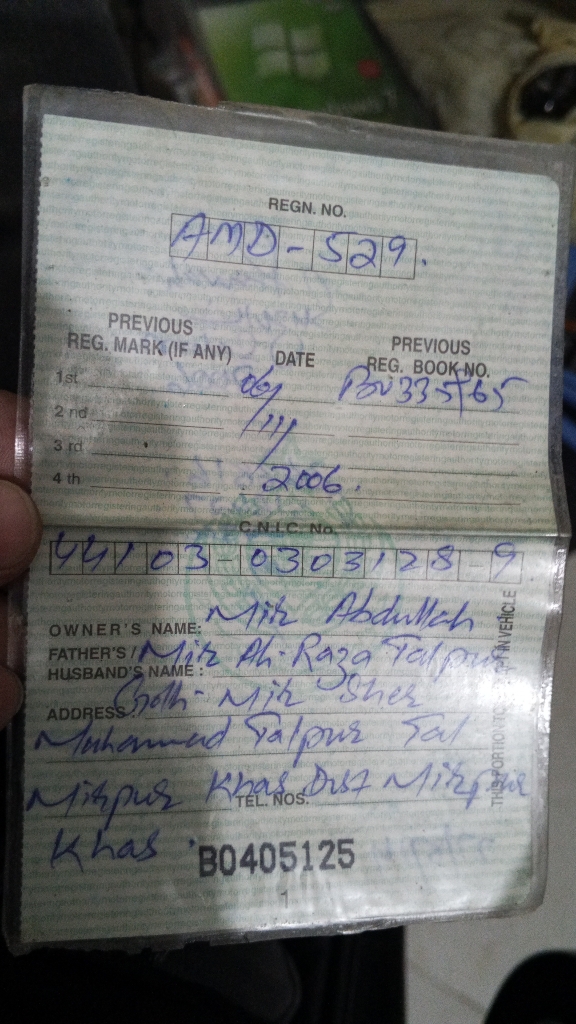 REGN. NO.
AMD-529.
PREVIOUS
REG. MARK (IF ANY)
DATE
PREVIOUS
REG. BOOK NO.
1st 06/ BU335765
2nd /11/
3rd
4th 2006.
C.N.I.C. No.
44103-0303128-9
OWNER'S NAME: Mir Abdullah
FATHER'S / Mir Ali Raza Talpur
HUSBAND'S NAME:
ADDRESS: Goth Mir Sher
Muhammad Talpur Tal
Mirpur Khas Dist Mirpur
TEL. NOS.
Khas.
B0405125
1
THIS PORTION TO IN VEHICLE